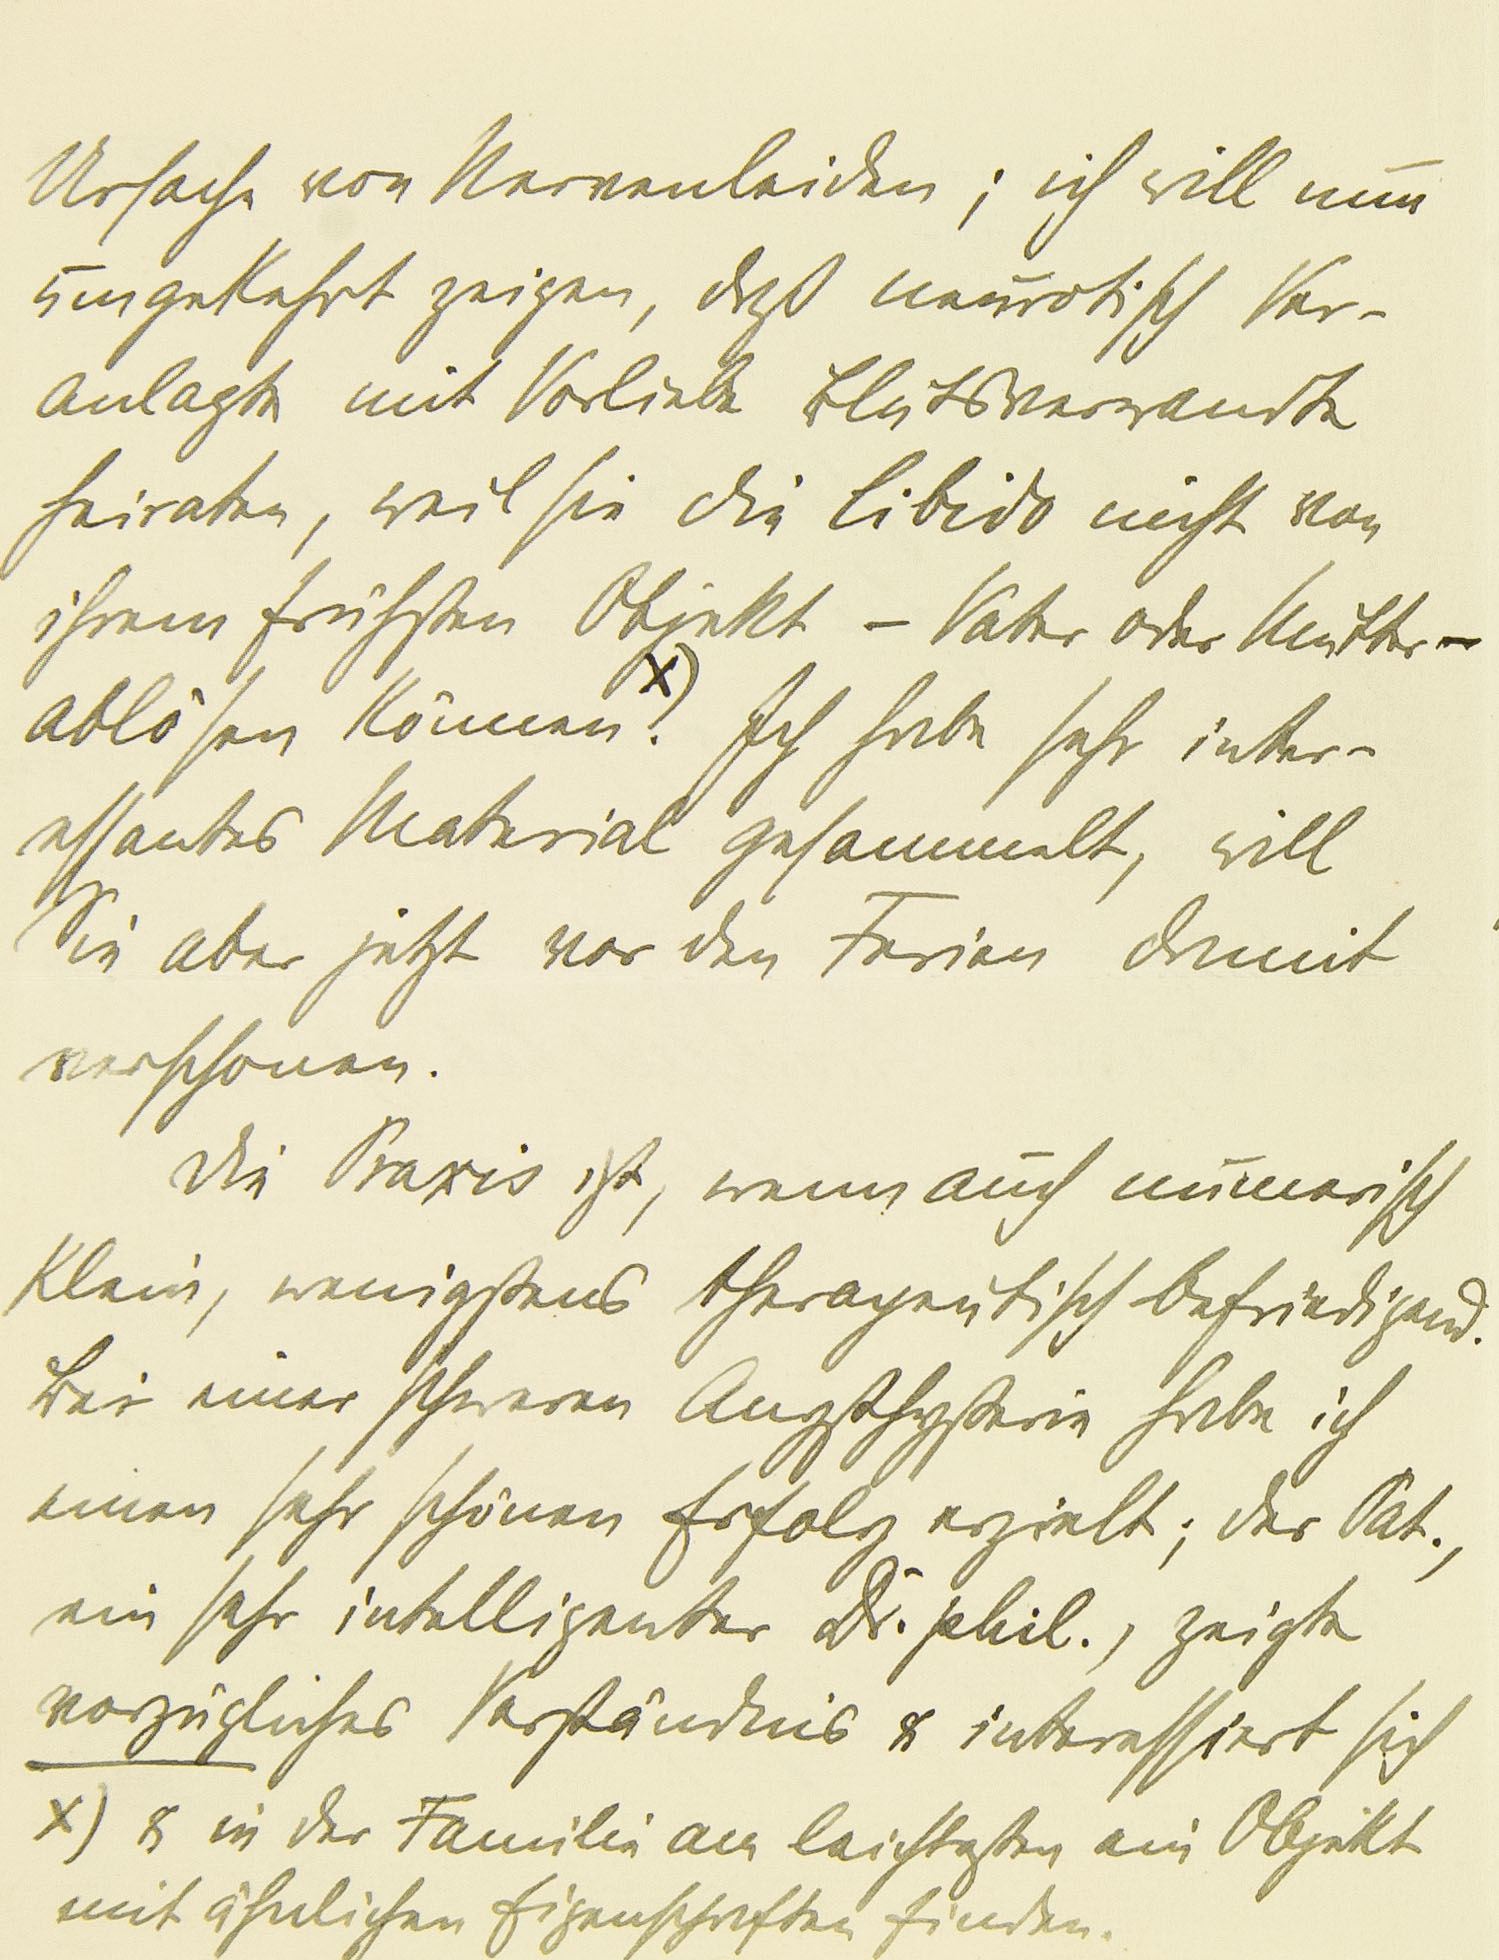 Ursache von Nervenleiden; ich will nun
umgekehrt zeigen, daß neurotisch Ver-
anlagte mit Vorliebe Blutsverwandte
heiraten, weil sie die Libido nicht von
ihrem frühsten Objekt – Vater oder Mutter –
ablösen können! x) Ich habe sehr inter-
essantes Material gesammelt, will
Sie aber jetzt vor den Ferien damit
verschonen.
Die Praxis ist, wenn auch numerisch
klein, wenigstens therapeutisch befriedigend.
Bei einer schweren Angsthysterie habe ich
einen sehr schönen Erfolg erzielt; der Pat.,
ein sehr intelligenter Dr. phil., zeigte
vorzügliches Verständnis & interessiert sich
x) & in der Familie am leichtesten ein Objekt
mit ähnlichen Eigenschaften finden.